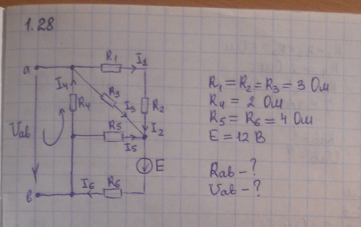 1.28
a R₁ I₁
I₄ R₃ R₂
R₄ I₃
Uab R₅ I₂
I₅ E
I₆ R₆
в
R₁ = R₂ = R₃ = 3 Ом
R₄ = 2 Ом
R₅ = R₆ = 4 Ом
E = 12 В
Rab - ?
Uab - ?